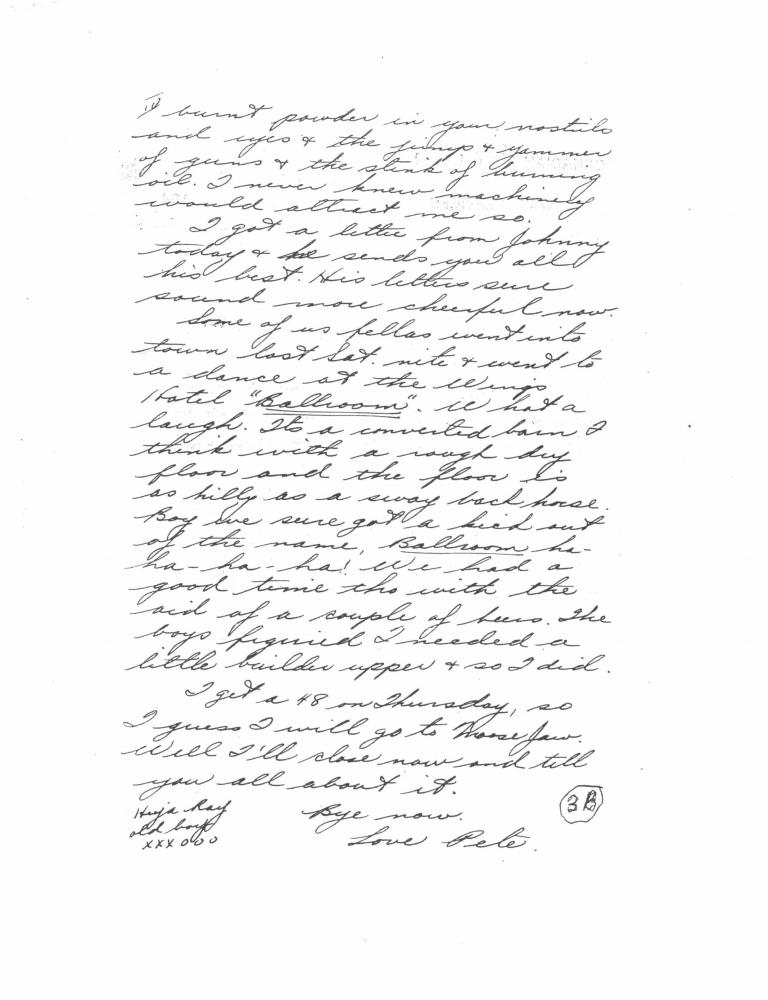 burnt powder in your nostrils
and eyes & the jump & yammer
of guns & the stink of burning
oil. I never knew machinery
would attract me so.
I got a letter from Johnny
today & he sends you all
his best. His letters sure
sound more cheerful now.
Some of us fellas went into
town last Sat. nite & went to
a dance at the Wings
Hotel "Ballroom". W hat a
laugh. Its a converted barn I
think with a rough dry
floor and the floor is
as hilly as a sway back horse.
Boy we sure got a kick out
of the name, Ballroom ha-
ha-ha-ha! We had a
good time tho with the
aid of a couple of beers. The
boys figured I needed a
little builder upper & so I did.
I get a 48 on Thursday, so
I guess I will go to Moose Jaw.
Well I'll close now and tell
you all about it.
Bye now.
Love Pete.
Huja Ray
old boy
xxx000
3B